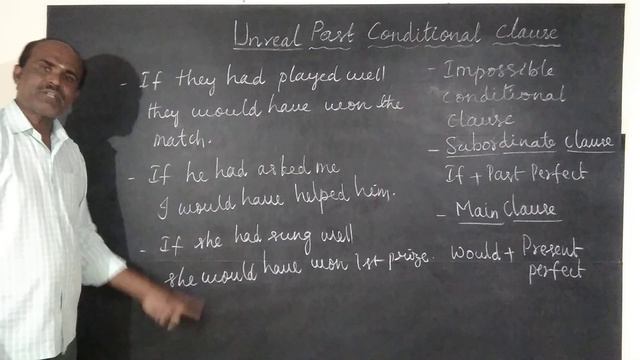 Unreal Past Conditional Clause
- If they had played well
they would have won the
match.
- If he had asked me
I would have helped him.
- If she had sung well
she would have won 1st prize.
- Impossible
Conditional
Clause
- Subordinate Clause
If + Past Perfect
- Main Clause
Would + Present
perfect